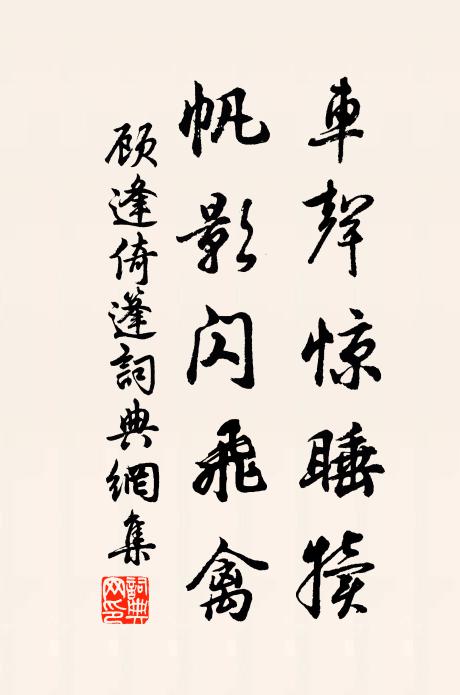 車聲惊睡犢
帆影闪飛禽
顾逢倚蓬詞典網集
詞典网印